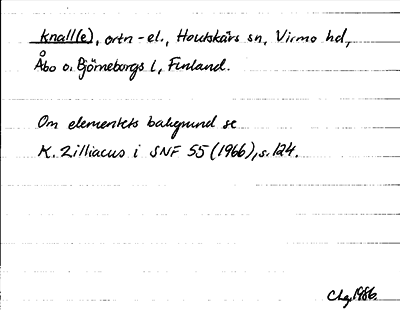 knall(e), ortn-el., Houtskärs sn, Virmo hd,
Åbo o. Björneborgs l, Finland.
Om elementets bakgrund se
K. Zilliacus i SNF 55 (1966), s. 124.
Chg 1986.